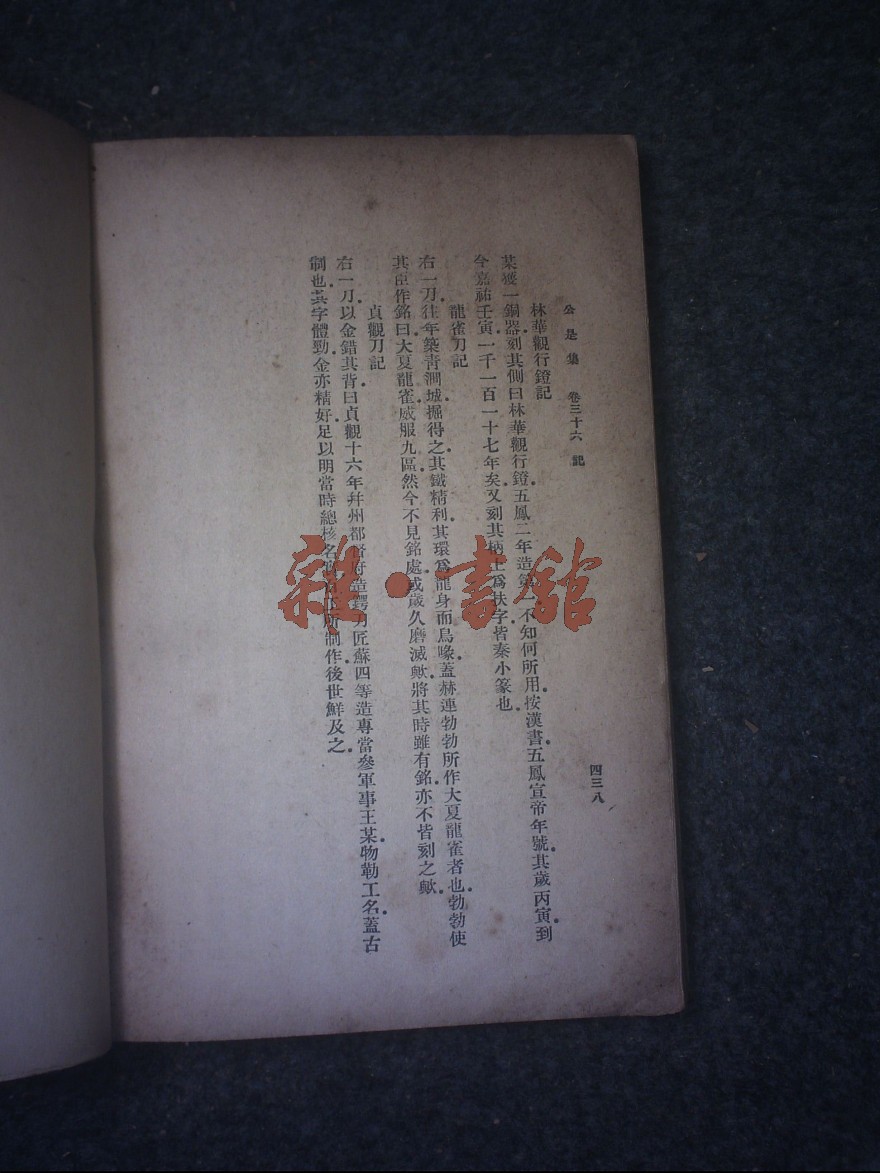 公是集 卷三十六 記 四三八
林華觀行鐙記
某獲一銅器刻其側曰林華觀行鐙五鳳二年造第 不知何所用按漢書五鳳宣帝年號其歲丙寅到
今嘉祐壬寅一千一百一十七年矣又刻其柄上爲扶字皆秦小篆也
龍雀刀記
右一刀往年築青澗城掘得之其鐵精利其環爲龍身而鳥喙蓋赫連勃勃所作大夏龍雀者也勃勃使
其臣作銘曰大夏龍雀威服九區然今不見銘處或歲久磨滅歟將其時雖有銘亦不皆刻之歟
貞觀刀記
右一刀以金錯其背曰貞觀十六年幷州都督府造鐔刀匠蘇四等造專當參軍事王某物勒工名蓋古
制也其字體勁金亦精好足以明當時總核名 所制作後世鮮及之
雜·書館